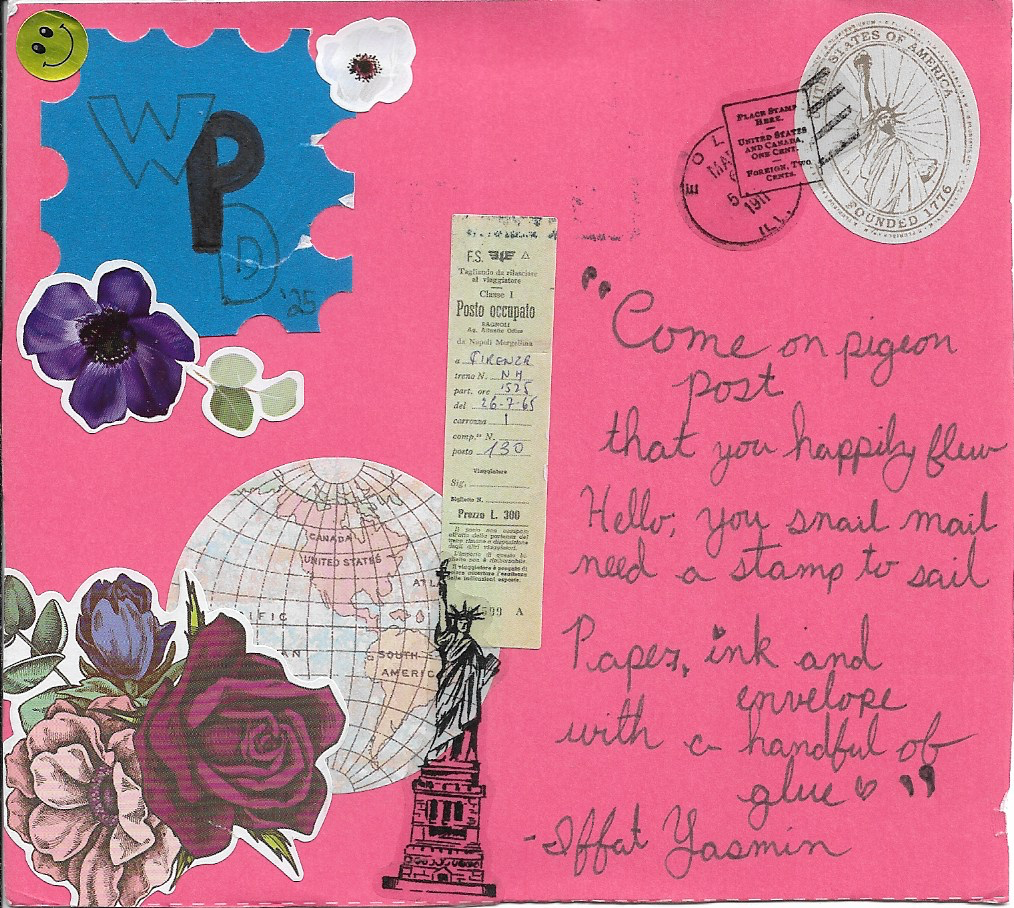 WPD
'25
PLACE STAMP
HERE.
UNITED STATES
AND CANADA,
ONE CENT.
FOREIGN, TWO
CENTS.
MA
5
1911
ILL.
STATES OF AMERICA
FOUNDED 1776
F.S.
Tagliando da rilasciare
al viaggiatore
Classe 1
Posto occupato
BAGNOLI
Ag. Alleata Office
da Napoli Mergellina
a FIRENZE
treno N. NH
part. ore 1525
del 26-7-65
carrozza 1
comp.to N.
posto 130
Viaggiatore
Sig.
Biglietto N.
Prezzo L. 300
599 A
CANADA
UNITED STATES
ATL
IFIC
AN
SOUTH
AMERIC
"Come on pigeon
post
that you happily flew
Hello, you snail mail
need a stamp to sail
Paper, ink and
envelope
with a handful of
glue ♡"
-Iffat Yasmin